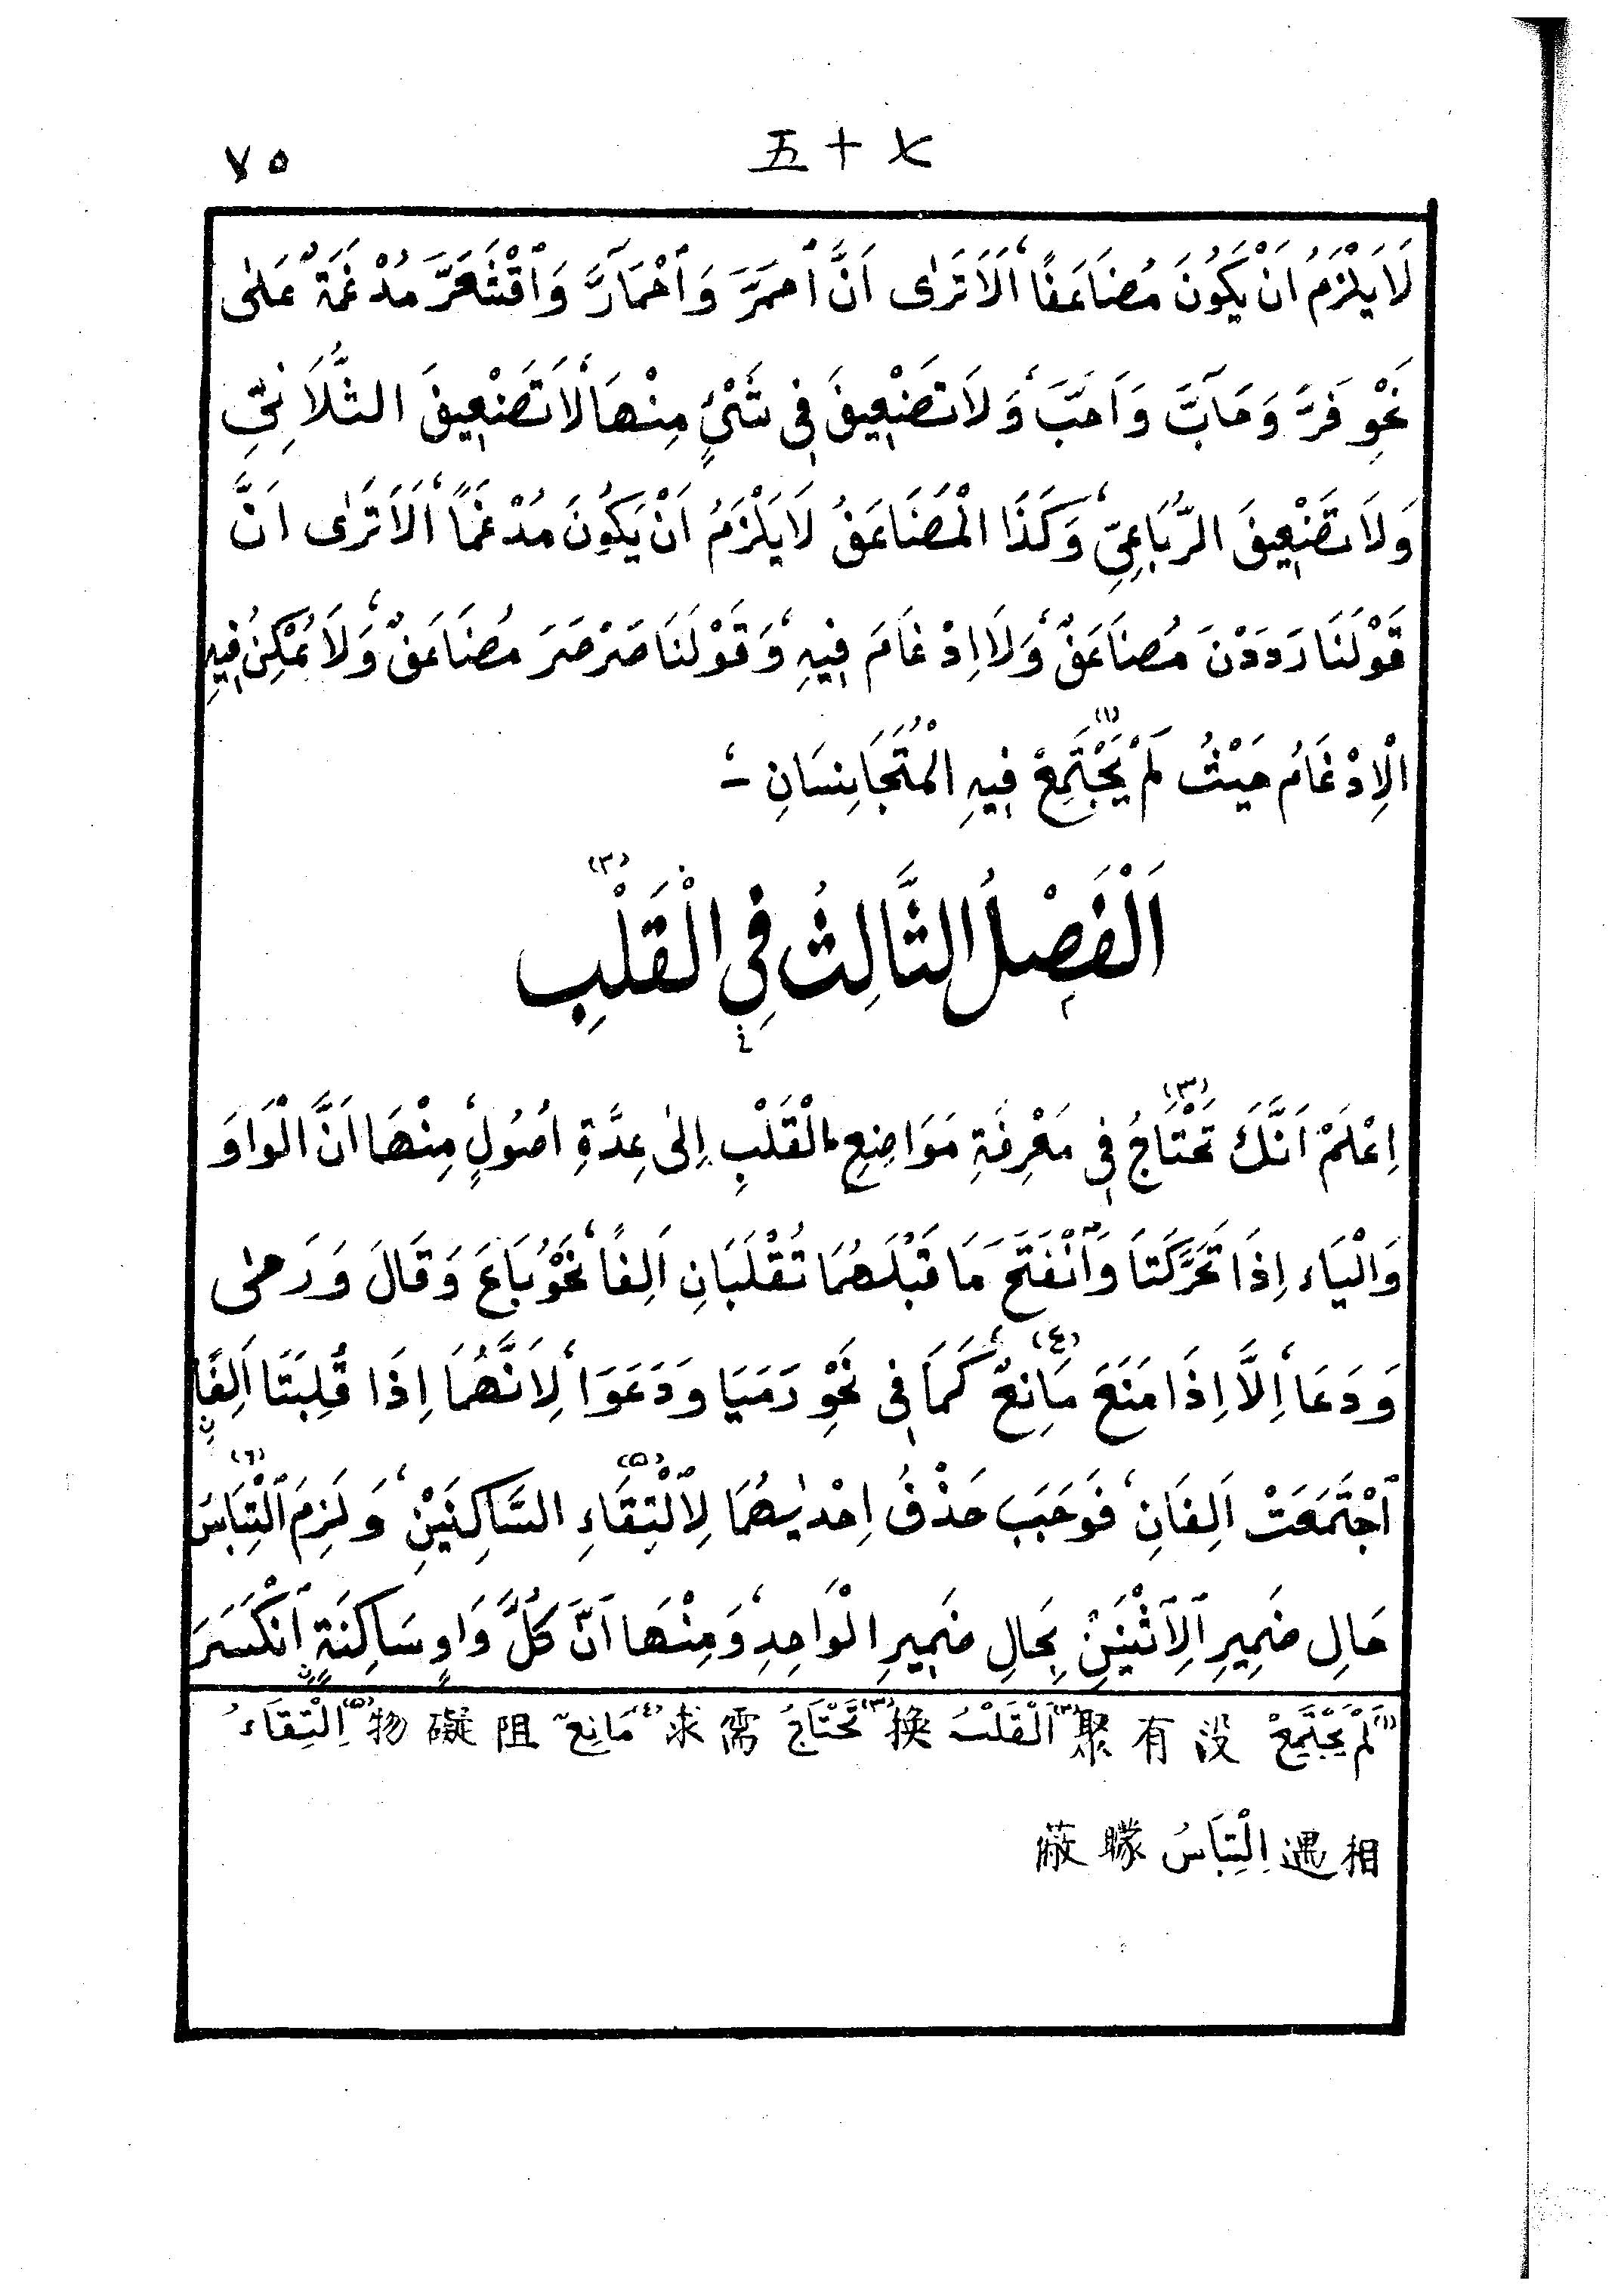 ٧٥
五十七
لَا يَلْزَمُ اَنْ يَكُونَ مُضَاعَفًا ٬ اَلَا تَرٰى اَنَّ ٱحمَرَّ وَٱحْمَآرَّ وَٱقْشَعَرَّ مُدْغَمَةٌ عَلٰى
نَحْوِ فَرَّ وَحَآبَّ وَاَحَبَّ ٬ وَلَا تَضْعِيفَ فِى شَىْءٍ مِنْهَا ٬ لَا تَضْعِيفَ الثُّلَاثِىِّ
وَلَا تَضْعِيفَ الرُّبَاعِىِّ ٬ وَكَذَا الْمُضَاعَفُ لَا يَلْزَمُ اَنْ يَكُونَ مُدْغَمًا ٬ اَلَا تَرٰى اَنَّ
قَوْلَنَا رَدَدْنَ مُضَاعَفٌ ٬ وَلَا اِدْغَامَ فِيهِ ٬ وَقَوْلَنَا صَرْصَرَ مُضَاعَفٌ ٬ وَلَا يُمْكِنُ فِيهِ
الْاِدْغَامُ حَيْثُ لَمْ يَجْتَمِعْ (١) فِيهِ الْمُتَجَانِسَانِ ـ ٬
اَلْفَصْلُ الثَّالِثُ فِى الْقَلْبِ (٢)
اِعْلَمْ اَنَّكَ تَحْتَاجُ (٣) فِى مَعْرِفَةِ مَوَاضِعِ الْقَلْبِ اِلٰى عِدَّةِ اُصُولٍ ٬ مِنْهَا اَنَّ الْوَاوَ
وَالْيَاءَ اِذَا تَحَرَّكَتَا وَٱنْفَتَحَ مَا قَبْلَهُمَا تُقْلَبَانِ اَلِفًا ٬ نَحْوُ بَاعَ وَقَالَ وَرَمٰى
وَدَعَا ٬ اِلَّا اِذَا مَنَعَ مَانِعٌ (٤) ٬ كَمَا فِى نَحْوِ رَمَيَا وَدَعَوَا ٬ لِاَنَّهُمَا اِذَا قُلِبَتَا اَلِفًا
ٱجْتَمَعَتْ اَلِفَانِ ٬ فَوَجَبَ حَذْفُ اِحْدٰيهُمَا لِٱلْتِقَاءِ (٥) السَّاكِنَيْنِ ٬ وَلَزِمَ ٱلْتِبَاسُ (٦)
حَالِ ضَمِيرِ ٱلِٱثْنَيْنِ بِحَالِ ضَمِيرِ الْوَاحِدِ ٬ وَمِنْهَا اَنَّ كُلَّ وَاوٍ سَاكِنَةٍ ٱنْكَسَرَ
(١) لَمْ يَجْتَمِعْ 没有聚 (٢) اَلْقَلْبُ 换 (٣) تَحْتَاجُ 需求 (٤) مَانِعٌ 阻礙物 (٥) اِلْتِقَاءُ
相遇 اِلْتِبَاسُ 矇蔽